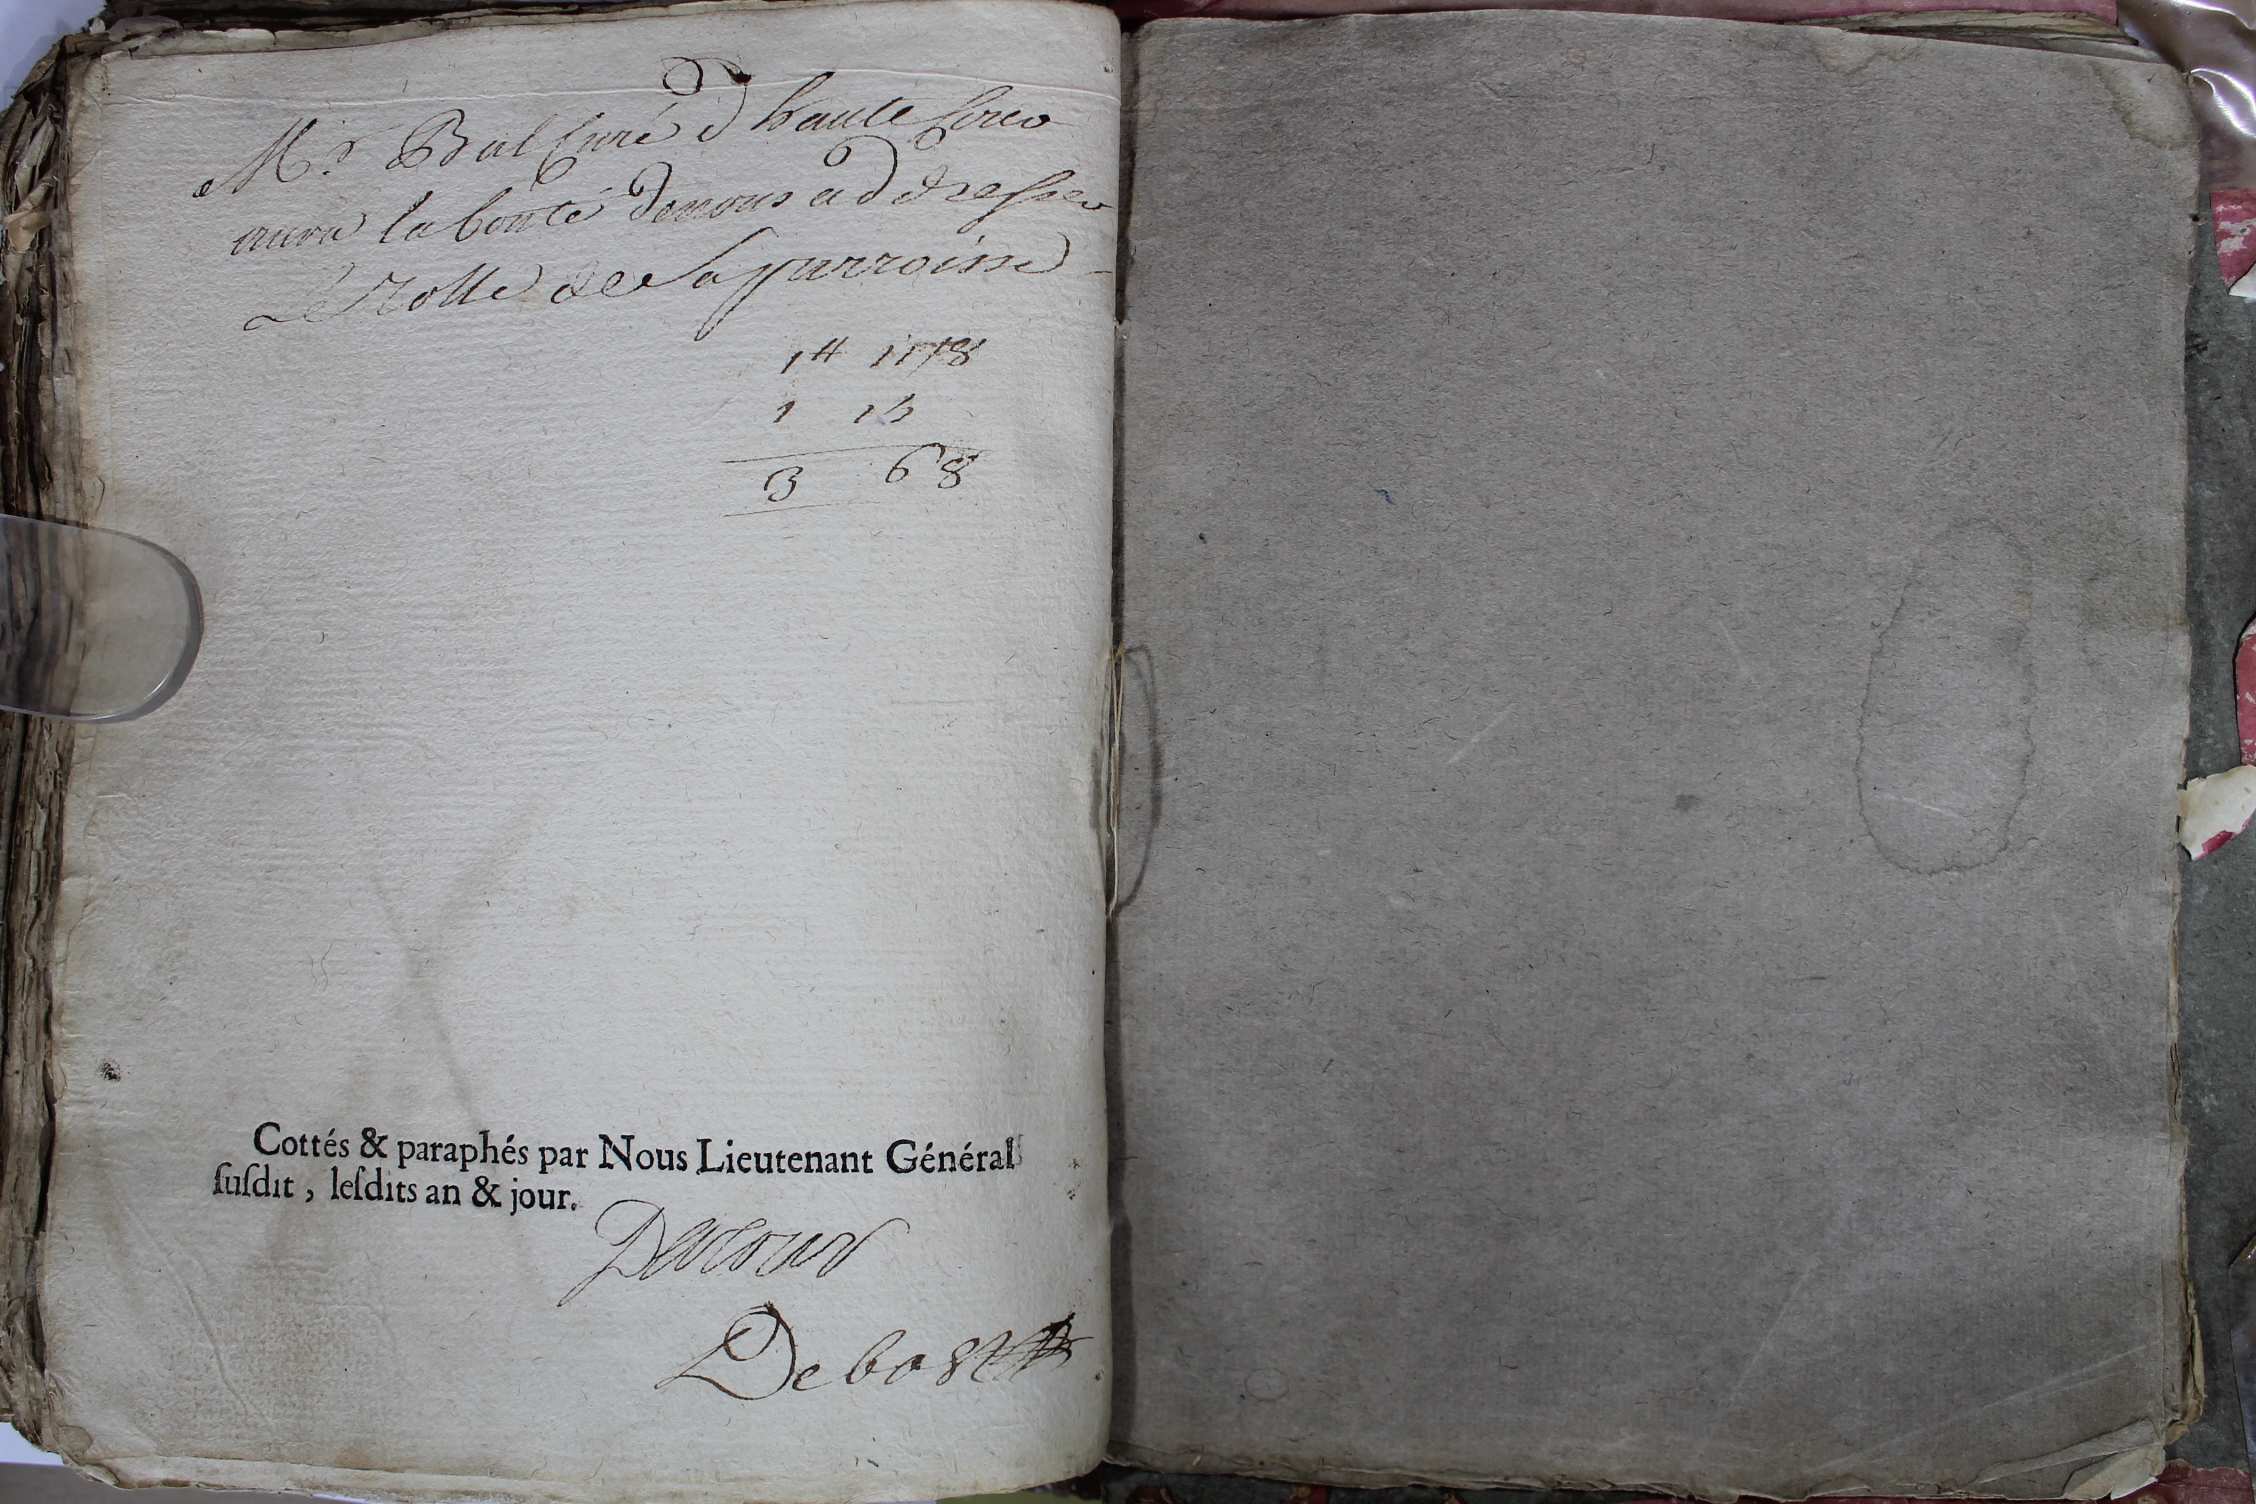 Mr. Bal Curé d haute
aura la bonté denous addresser
le Rolle de Sa parroisse
1tt 11 8
1 15
3 6 8
Cottés & paraphés par Nous Lieutenant Général
ſuſdit, leſdits an & jour.